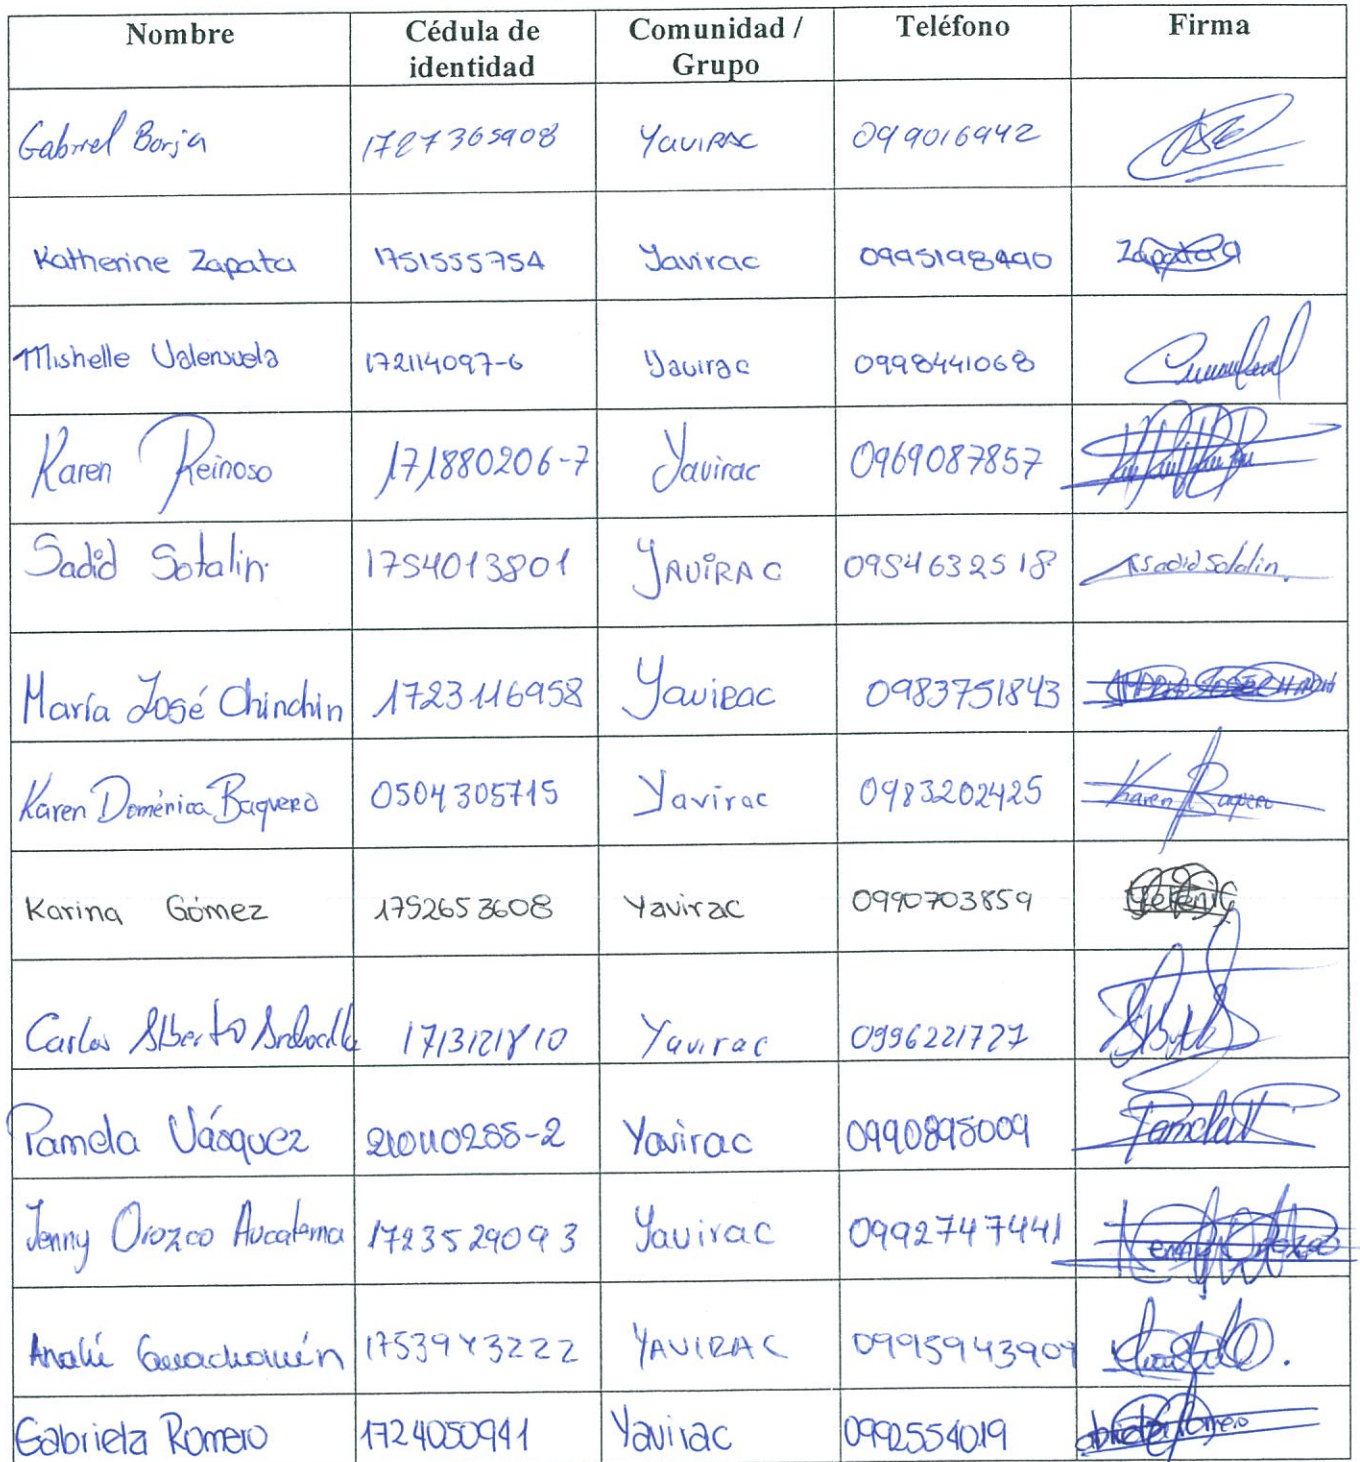 Nombre Cédula de identidad Comunidad / Grupo Teléfono Firma
Gabriel Borja 1727365908 Yavirac 099016942
Katherine Zapata 1751555754 Yavirac 0995198490 Zapata
Mishelle Valensuela 172114097-6 Yavirac 0998441068
Karen Reinoso 171880206-7 Yavirac 0969087857
Sadid Sotalin 1754013801 YAVIRAC 0984632518 Sadid Sotalin
María José Chinchin 1723116958 Yavirac 0983751843
Karen Doménica Baquero 0504305715 Yavirac 0983202425 Karen Baquero
Karina Gómez 1752653608 Yavirac 0990703859
Carlos Alberto 1713121810 Yavirac 0996221727
Pamela Vásquez 210110288-2 Yavirac 0990895009 Pamela V
Jenny Orozco Aucatoma 1723529093 Yavirac 0992747441 Jenny Orozco
Anahí Guachamín 1753943222 YAVIRAC 0995943909
Gabriela Romero 1724050941 Yavirac 0992554019 Gabriela Romero